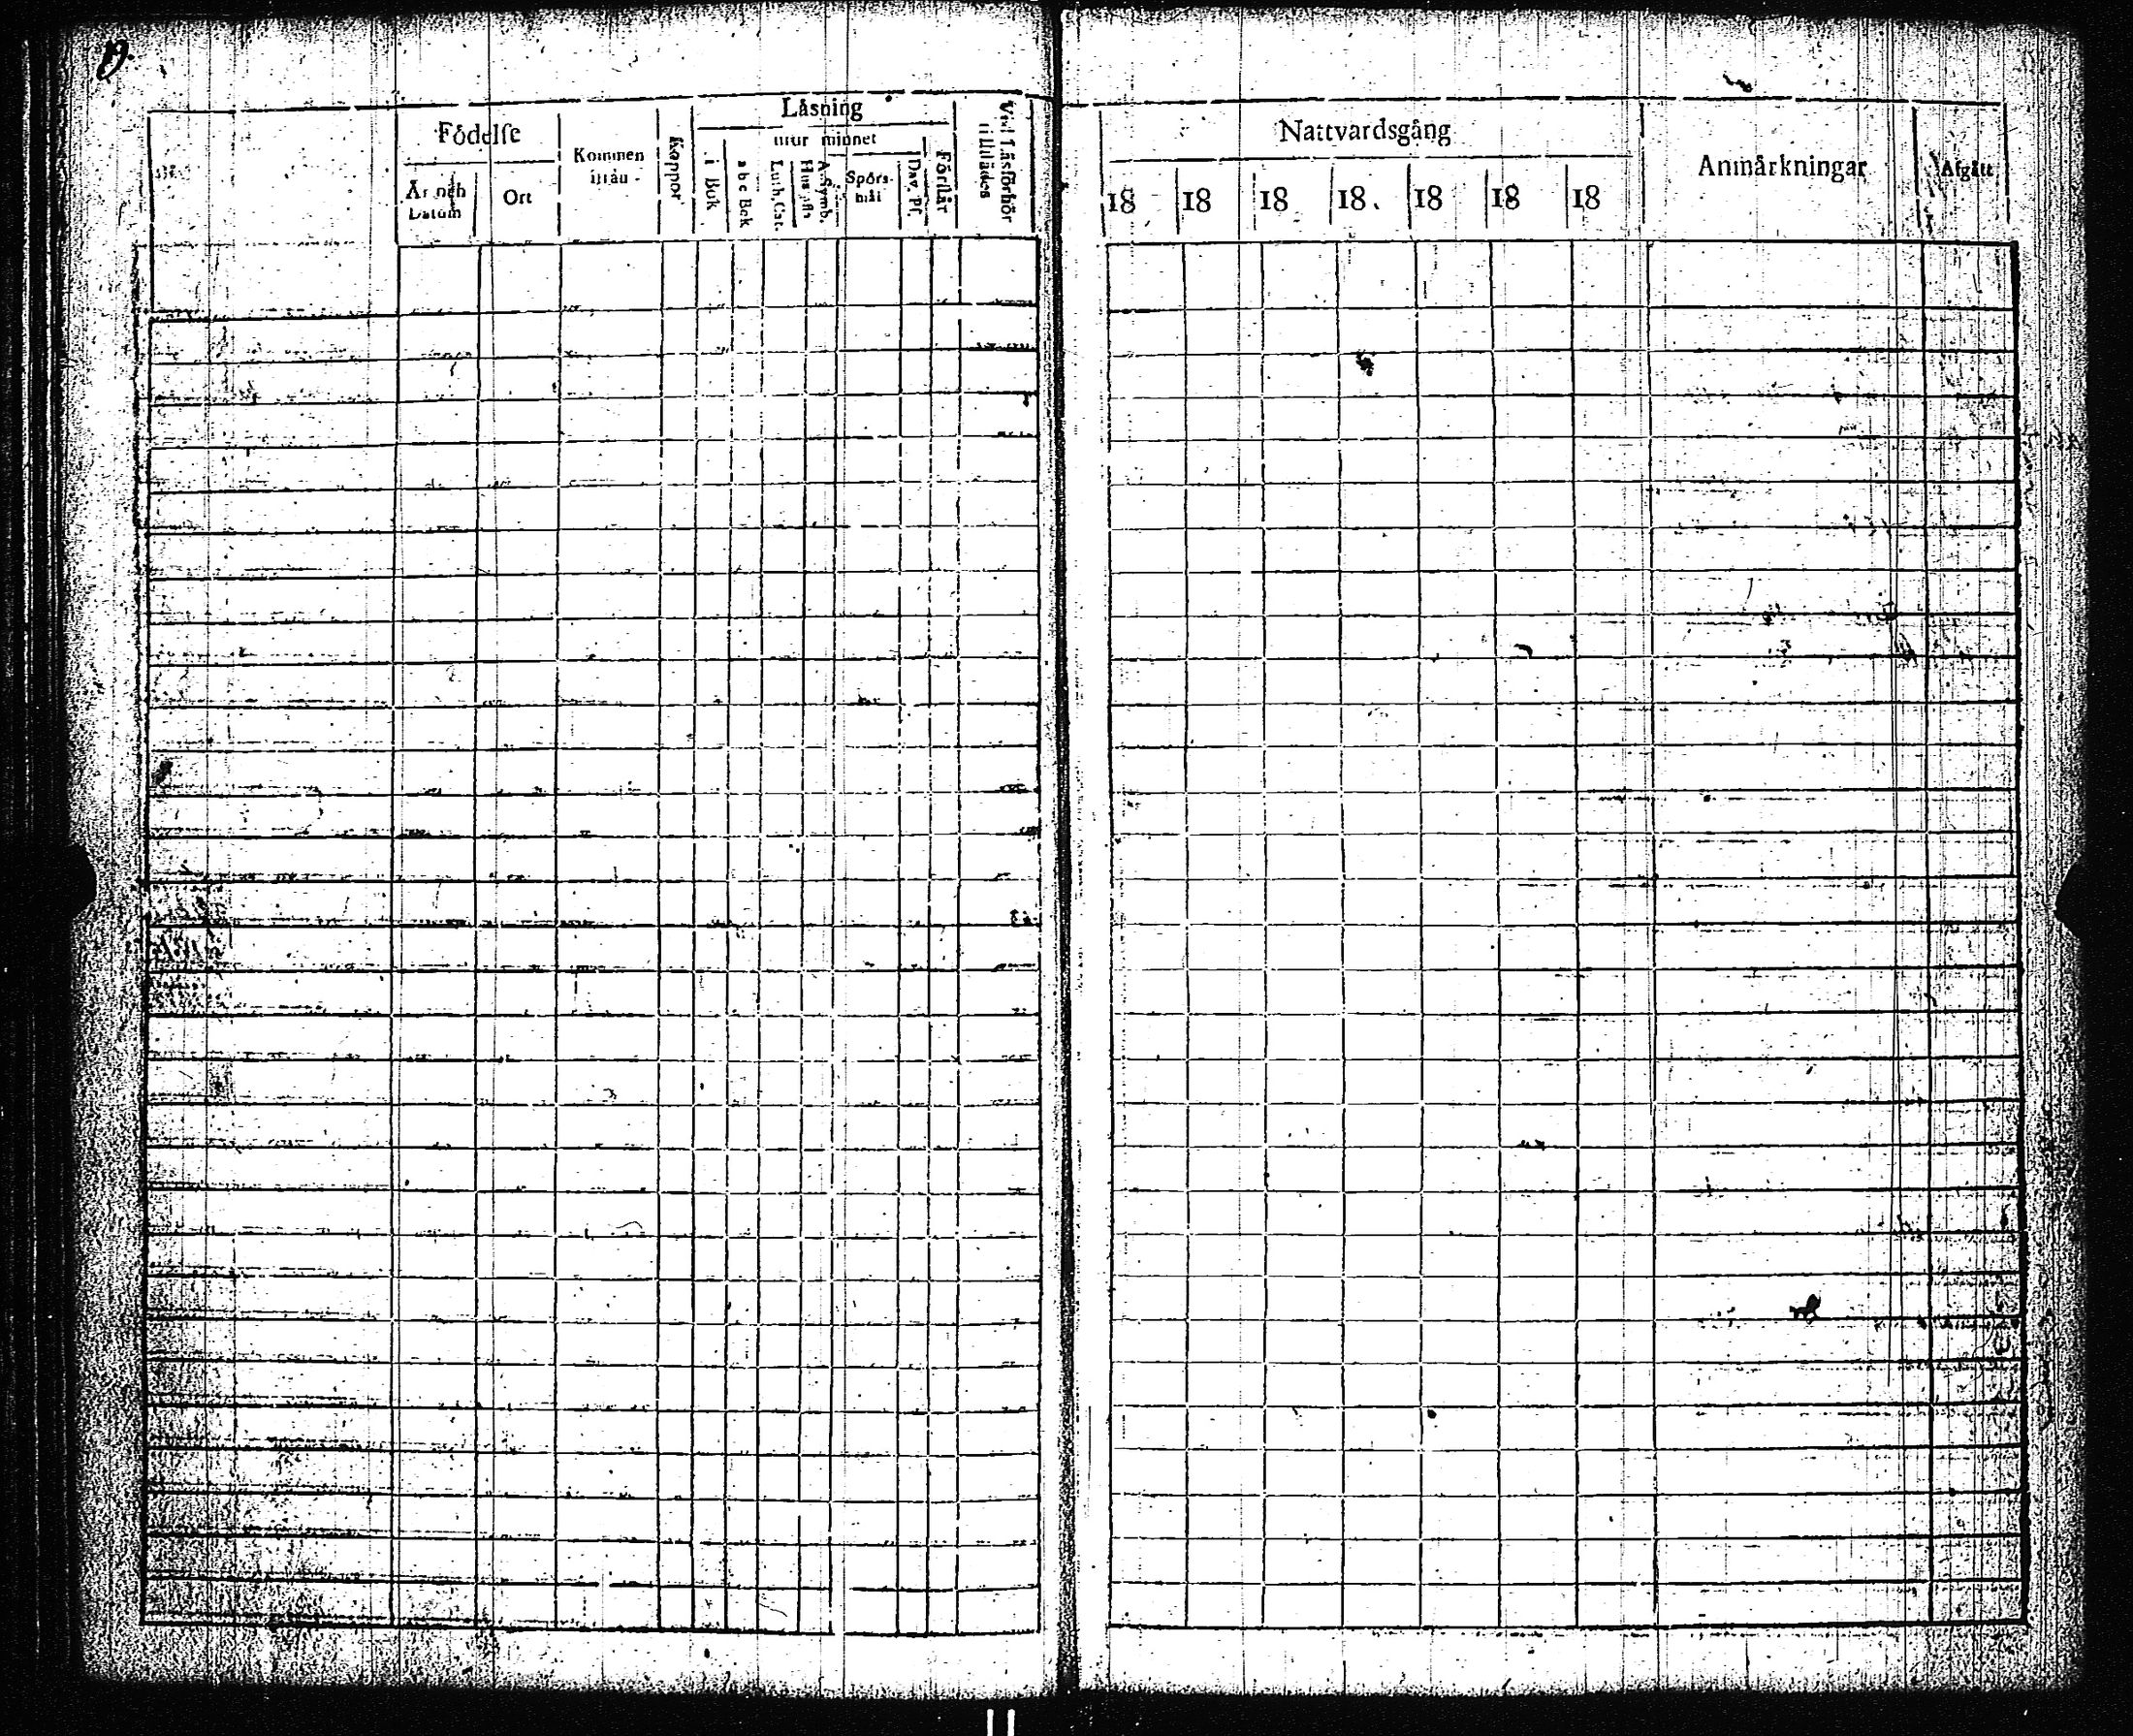 19.
Födelſe
År och Datum
Ort
Kommen ifrån
Koppor
Läsning
i Bok
utur minnet
a b c Bok
Luth. Cat.
A. Symb.
Spörs-mål
Dav. Pſ.
Förſtår
Vid Läsförhör tillſtädes
Nattvardsgång
18 18 18 18. 18 18 18
Anmärkningar
Afgått